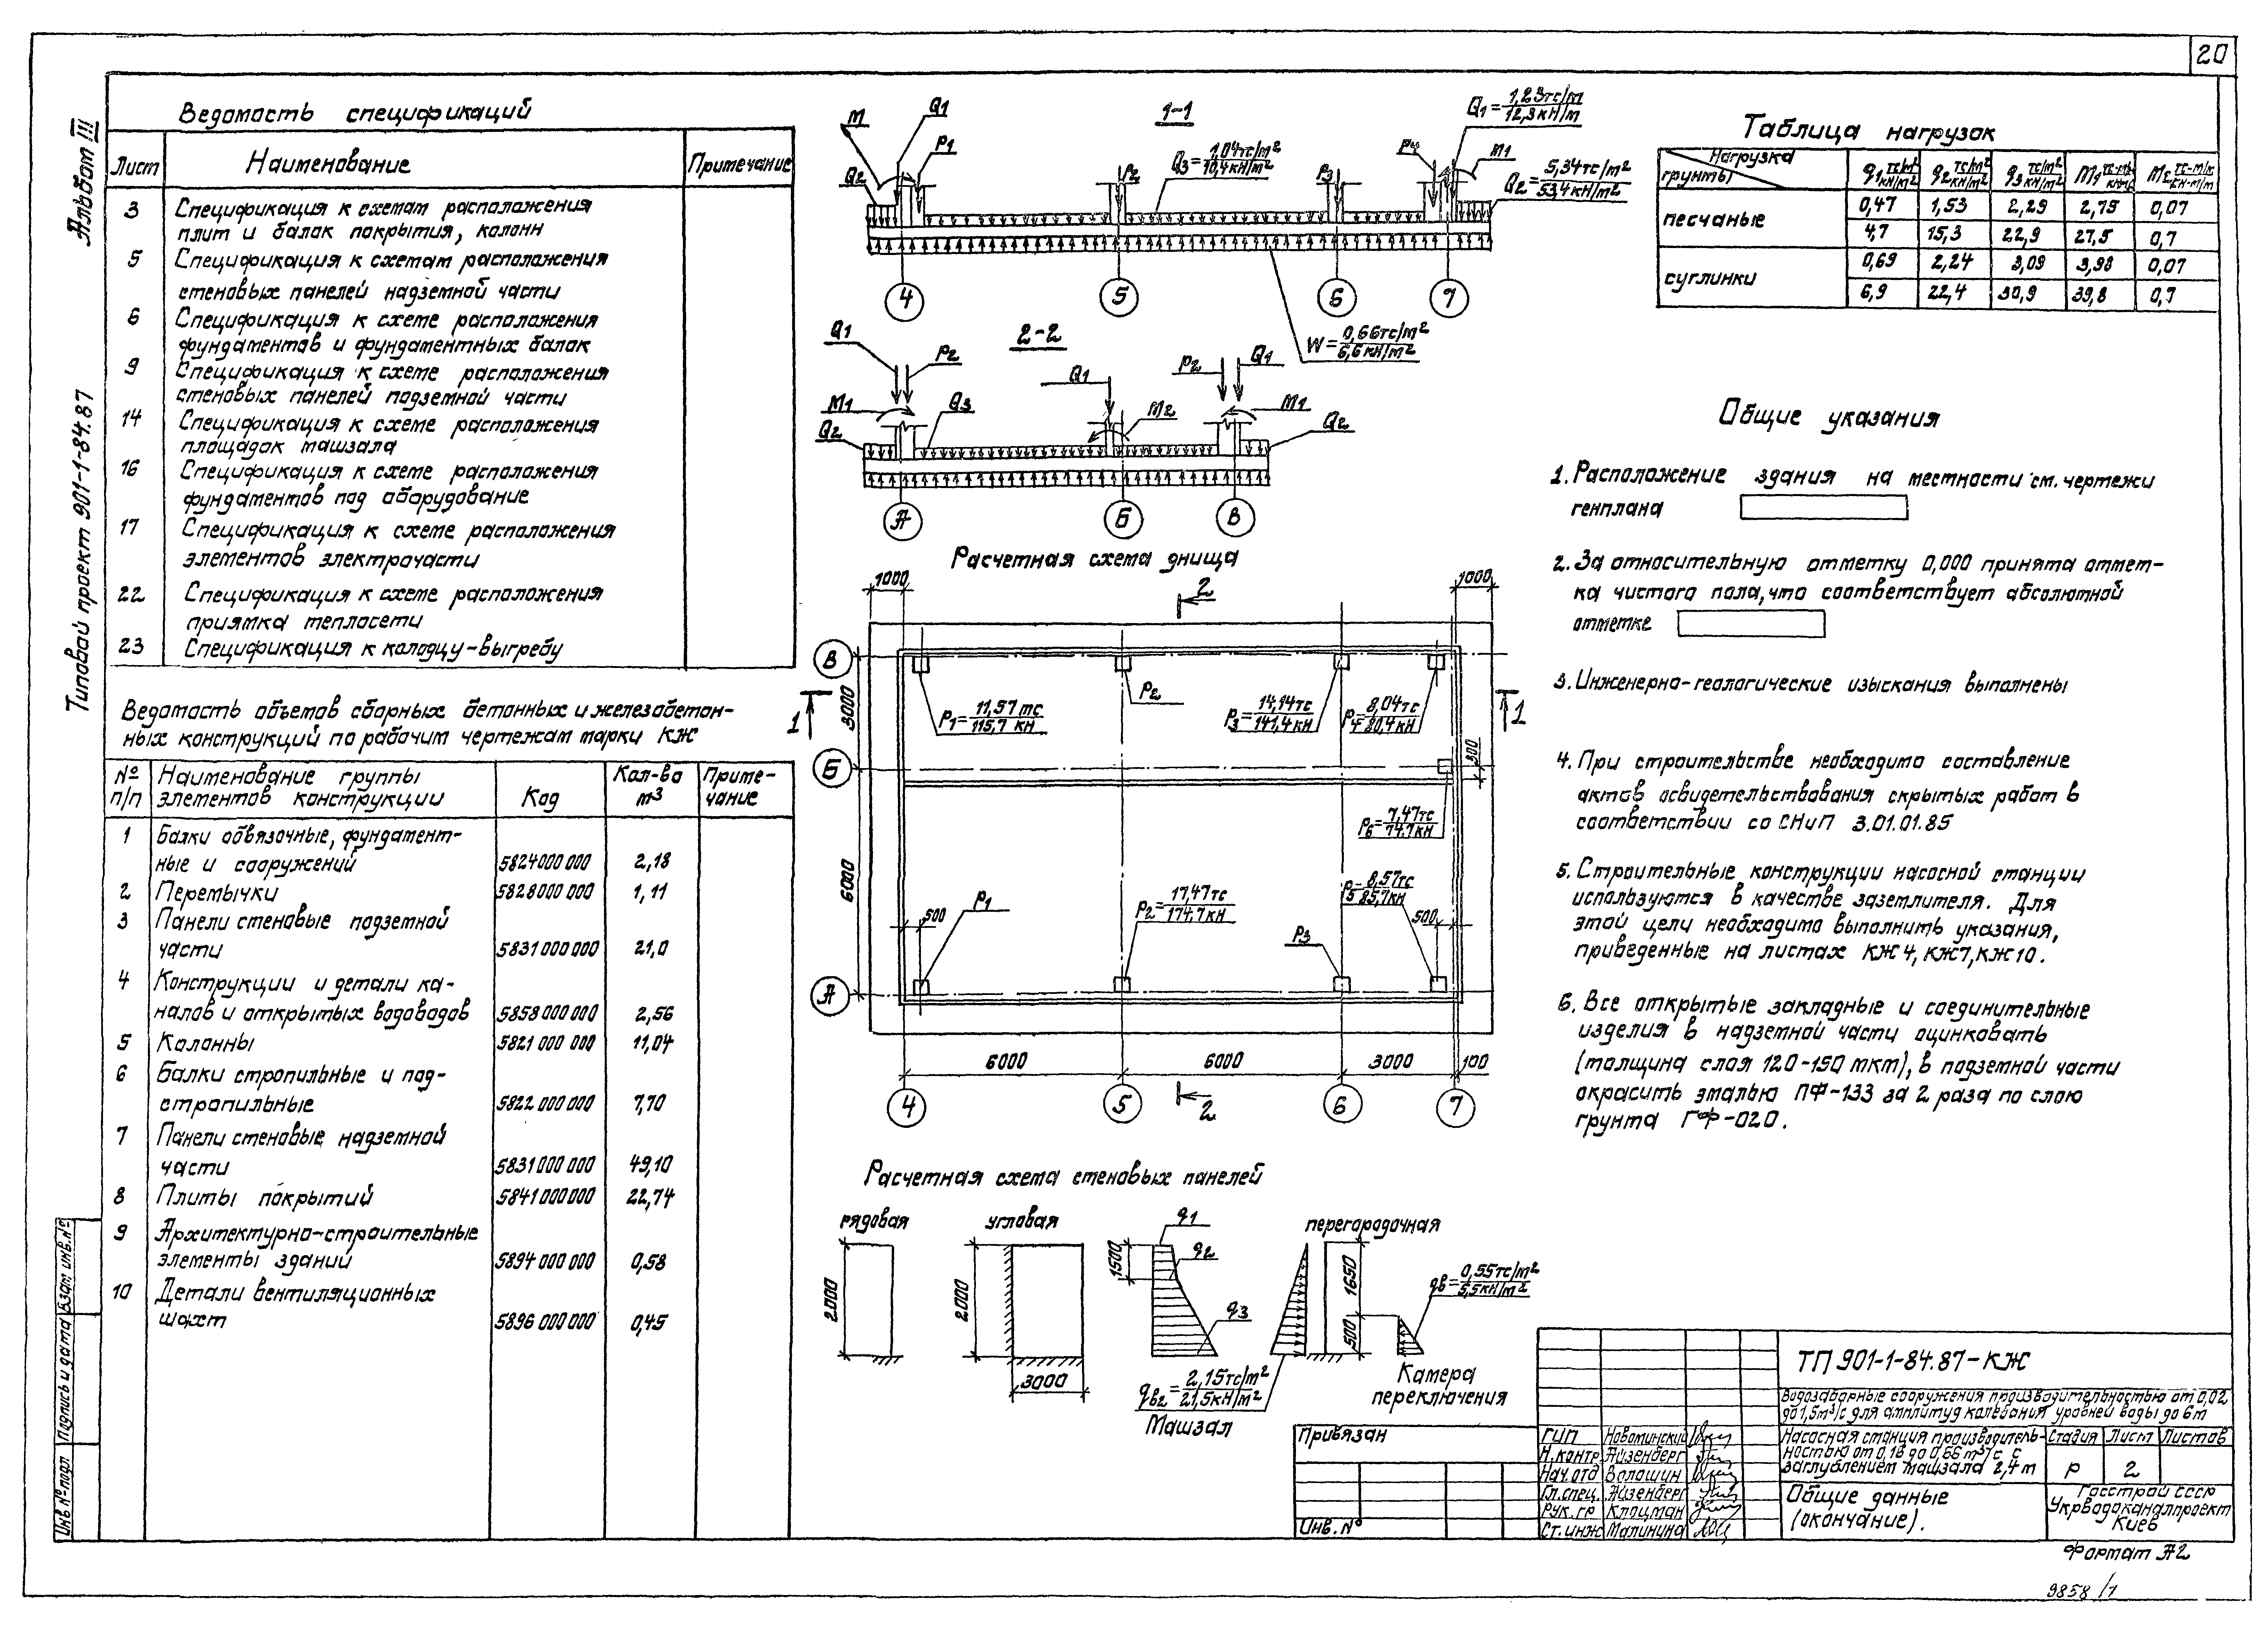 20
Альбом III
Типовой проект 901-1-84.87
Ведомость спецификаций
Лист Наименование Примечание
3 Спецификация к схемам расположения
плит и балок покрытия, колонн
5 Спецификация к схемам расположения
стеновых панелей надземной части
6 Спецификация к схеме расположения
фундаментов и фундаментных балок
9 Спецификация к схеме расположения
стеновых панелей подземной части
14 Спецификация к схеме расположения
площадок машзала
16 Спецификация к схеме расположения
фундаментов под оборудование
17 Спецификация к схеме расположения
элементов электрочасти
22 Спецификация к схеме расположения
приямка теплосети
23 Спецификация к колодцу-выгребу
Ведомость объемов сборных бетонных и железобетон-
ных конструкций по рабочим чертежам марки КЖ
№ п/п Наименование группы элементов конструкции Код Кол-во м3 Приме-чание
1 Балки обвязочные, фундамент-
ные и сооружений 5824000000 2,18
2 Перемычки 5828000000 1,11
3 Панели стеновые подземной
части 5831000000 21,0
4 Конструкции и детали ка-
налов и открытых водоводов 5858000000 2,56
5 Колонны 5821000000 11,04
6 Балки стропильные и под-
стропильные 5822000000 7,70
7 Панели стеновые надземной
части 5831000000 49,10
8 Плиты покрытий 5841000000 22,74
9 Архитектурно-строительные
элементы зданий 5894000000 0,58
10 Детали вентиляционных
шахт 5896000000 0,45
1-1
M Q1 P1 Q2
Q3=1,04тс/м2 / 10,4кН/м2
P2 P3 P4 M1
Q1=1,23тс/м / 12,3кН/м
Q2=5,34тс/м2 / 53,4кН/м2
4 5 6 7
W=0,66тс/м2 / 6,6кН/м2
2-2
Q1 P2 Q1 P2 Q1
M1 Q3 M2 M1
Q2 Q2
А Б В
Расчетная схема днища
1000 2 1000
В
P2
1 3000 1
P1=11,57тс / 115,7кН
P3=14,14тс / 141,4кН
P4=8,04тс / 80,4кН
Б
P6=7,47тс / 74,7кН
6000
500 P1
P2=17,47тс / 174,7кН
P5=8,57тс / 85,7кН
500
P3
А
6000 6000 3000 100
4 5 2 6 7
Расчетная схема стеновых панелей
рядовая угловая перегородочная
2000 2000 3000
q1 q2 q3 1500
1650 500
qв=0,55тс/м2 / 5,5кН/м2
qв2=2,15тс/м2 / 21,5кН/м2
Машзал
Камера
переключения
Таблица нагрузок
Нагрузка грунты q1 тс/м2 кН/м2 q2 тс/м2 кН/м2 q3 тс/м2 кН/м2 M1 M2 тс-м/м кН-м/м
песчаные 0,47 1,53 2,29 2,75 0,07
4,7 15,3 22,9 27,5 0,7
суглинки 0,69 2,24 3,09 3,98 0,07
6,9 22,4 30,9 39,8 0,7
Общие указания
1. Расположение здания на местности см. чертежи
генплана
2. За относительную отметку 0,000 принята отмет-
ка чистого пола, что соответствует абсолютной
отметке
3. Инженерно-геологические изыскания выполнены
4. При строительстве необходимо составление
актов освидетельствования скрытых работ в
соответствии со СНиП 3.01.01.85
5. Строительные конструкции насосной станции
используются в качестве заземлителя. Для
этой цели необходимо выполнить указания,
приведенные на листах КЖ4, КЖ7, КЖ10.
6. Все открытые закладные и соединительные
изделия в надземной части оцинковать
(толщина слоя 120-150 мкм), в подземной части
окрасить эмалью ПФ-133 за 2 раза по слою
грунта ГФ-020.
Привязан
Инв. №
ГИП Новоминский
Н.контр. Айзенберг
Нач.отд Волошин
Гл.спец. Айзенберг
Рук.гр Клоцман
Ст.инж Малинина
ТП 901-1-84.87-КЖ
Водозаборные сооружения производительностью от 0,02
до 1,5м3/с для амплитуд колебания уровней воды до 6м
Насосная станция производитель-
ностью от 0,18 до 0,66 м3/с с
заглублением машзала 2,4м
Стадия Лист Листов
Р 2
Общие данные
(окончание).
Госстрой СССР
Укрводоканалпроект
Киев
Инв № подл Подпись и дата Взам инв. №
Формат А2
9858/1